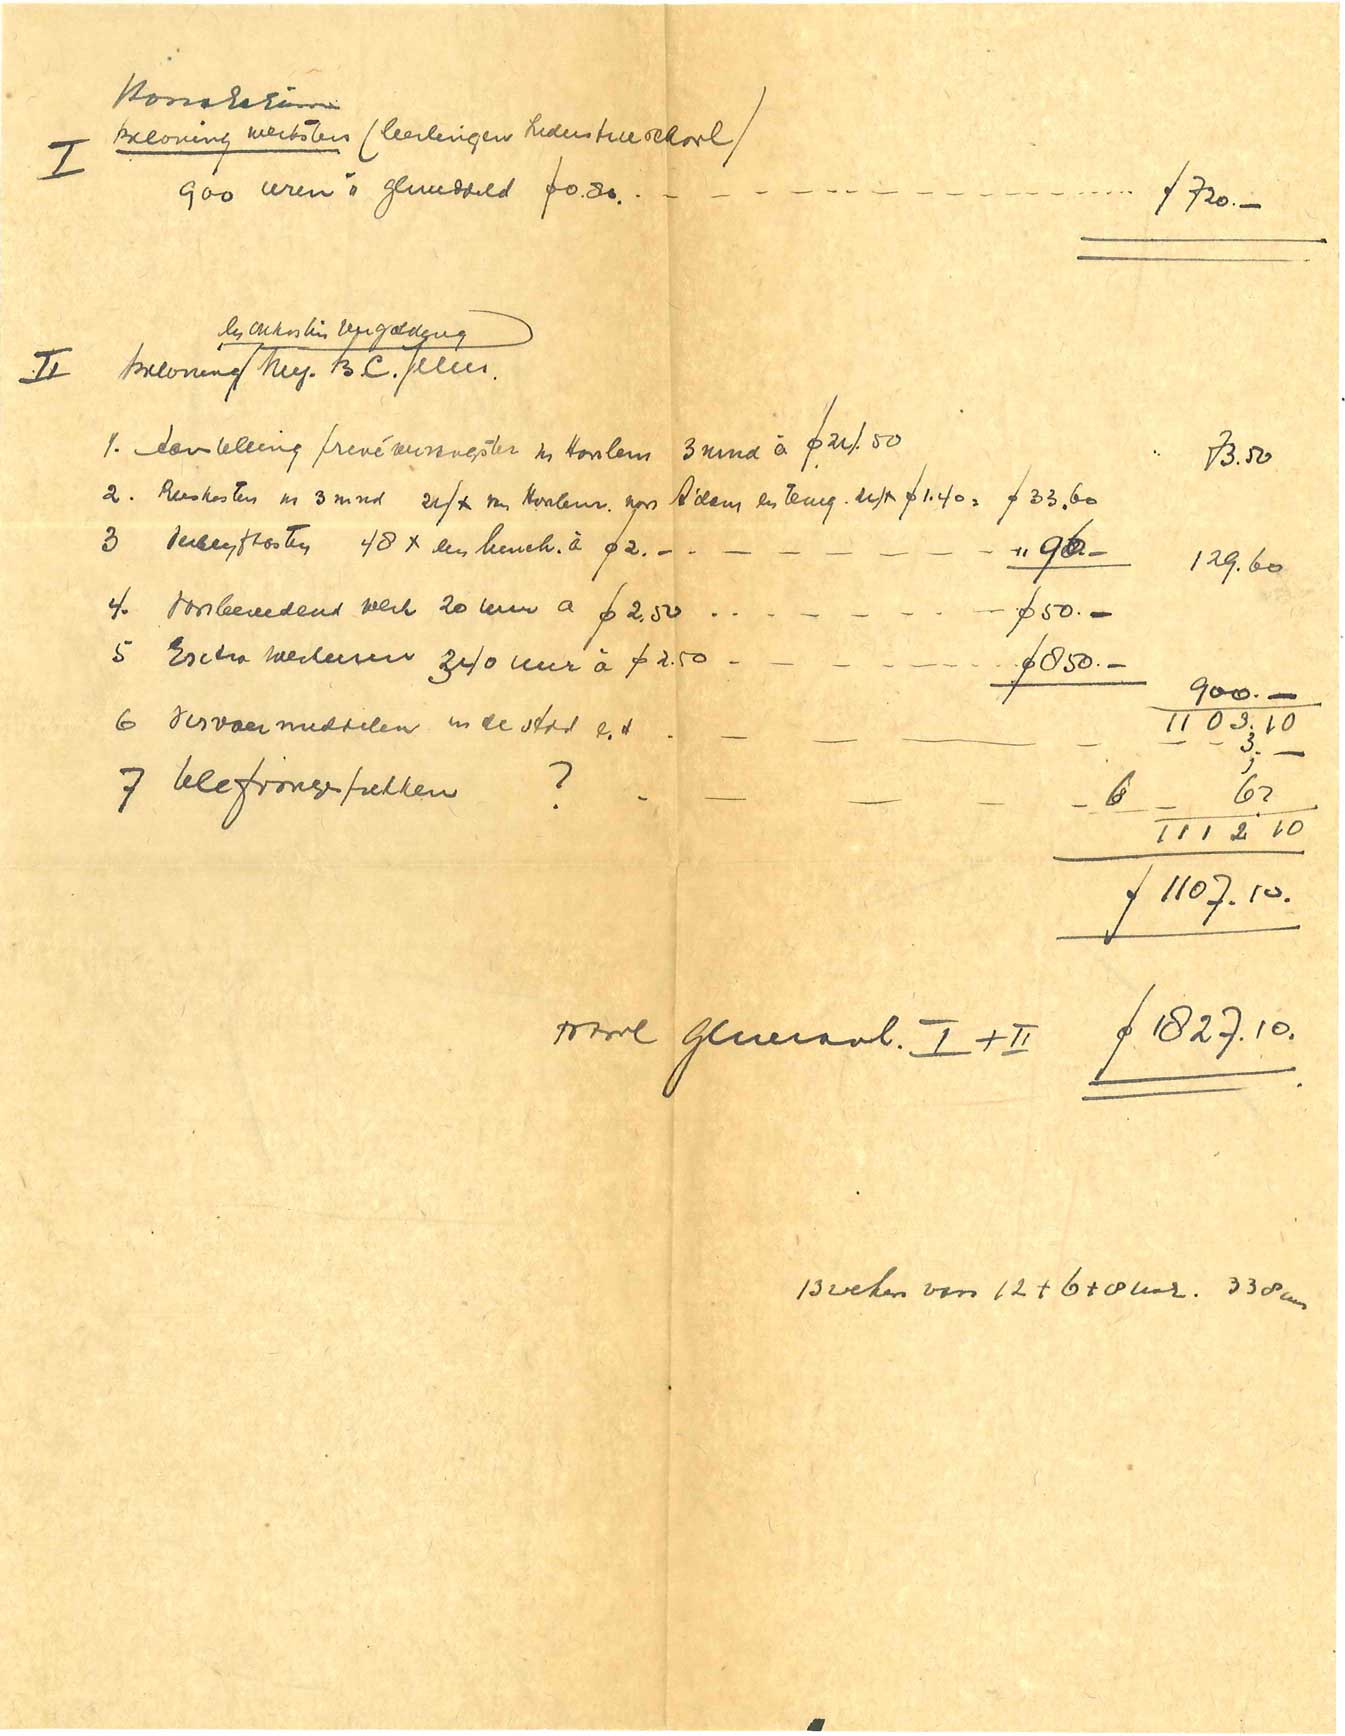 I beloning werksters (leerlingen Industrieschool)
900 uren à gemiddeld f 0.80. f 720.—
en onkosten vergoeding
II beloning Mej. B C.
1. Aanstelling in Haarlem 3 mnd à f 24.50 73.50
2. Reiskosten in 3 mnd 24 x van Haarlem naar A'dam en terug. 24 x f 1.40 = f 33.60
3 Verblijfkosten 48 x een lunch. à f 2.— " 96.— 129.60
4. Voorbereidend werk 20 uur à f 2.50 f 50.—
5 Extra werkuren 340 uur à f 2.50 f 850.—
900.—
1103.10
6 Vervoermiddelen in de stad e.d. 3.—
7 telefoongesprekken ? 6 6
1112.10
f 1107.10.
totaal Generaal. I + II f 1827.10.
13 weken van 12 + 6 + 8 uur. 338 uur